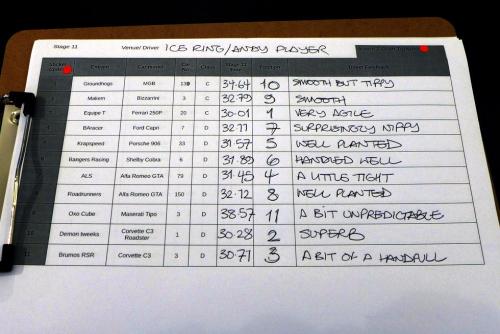 Stage 11 Venue/ Driver ICE RING/ANDY PLAYER
Sticker Entrant Car/Model Car No. Class Stage 11 Position Driver Feedback
Groundhogs MGB 139 C 34.64 10 SMOOTH BUT TIPPY
Makem Bizzarrini 3 C 32.79 9 SMOOTH
Equipe T Ferrari 250P 20 C 30.01 1 VERY AGILE
BAracer Ford Capri 7 D 32.11 7 SURPRISINGLY NIPPY
Krapspeed Porsche 906 33 D 31.57 5 WELL PLANTED
Bangers Racing Shelby Cobra 6 D 31.89 6 HANDLED WELL
ALS Alfa Romeo GTA 79 D 31.45 4 A LITTLE TIGHT
Roadrunners Alfa Romeo GTA 150 D 32.12 8 WELL PLANTED
Oxo Cube Maserati Tipo 3 D 38.57 11 A BIT UNPREDICTABLE
Demon tweeks Corvette C3 Roadster 1 D 30.28 2 SUPERB
Brumos RSR Corvette C3 3 D 30.71 3 A BIT OF A HANDFULL